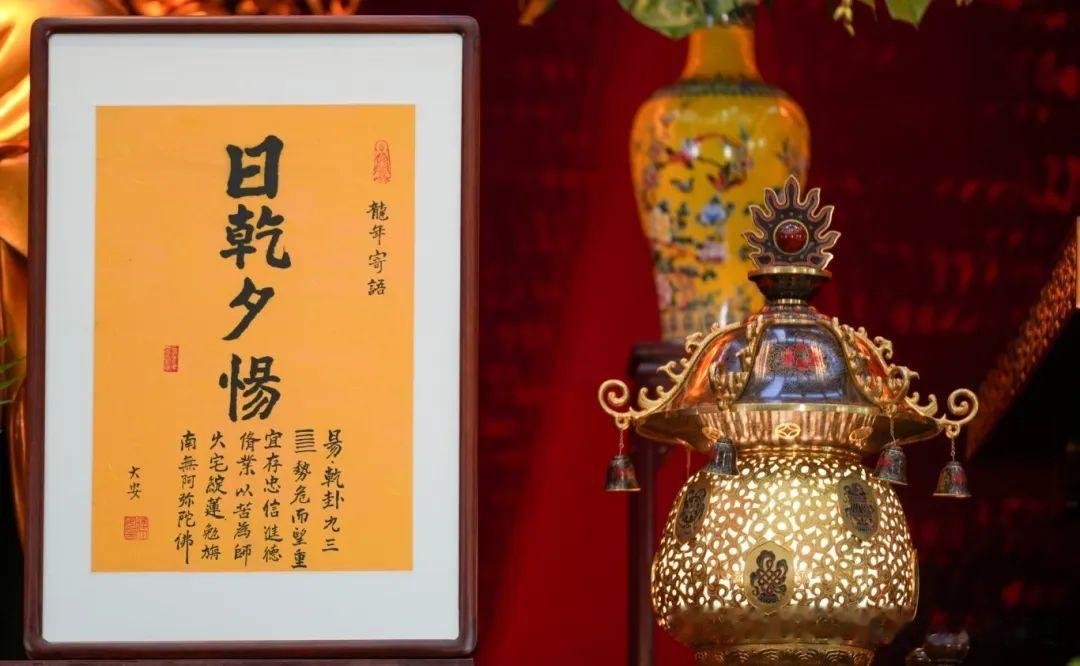 龍年寄語
日乾夕惕
易乾卦九三
☰勢危而望重
宜存忠信進德
脩業以苦為師
火宅綻蓮勉旃
南無阿弥陀佛
大安